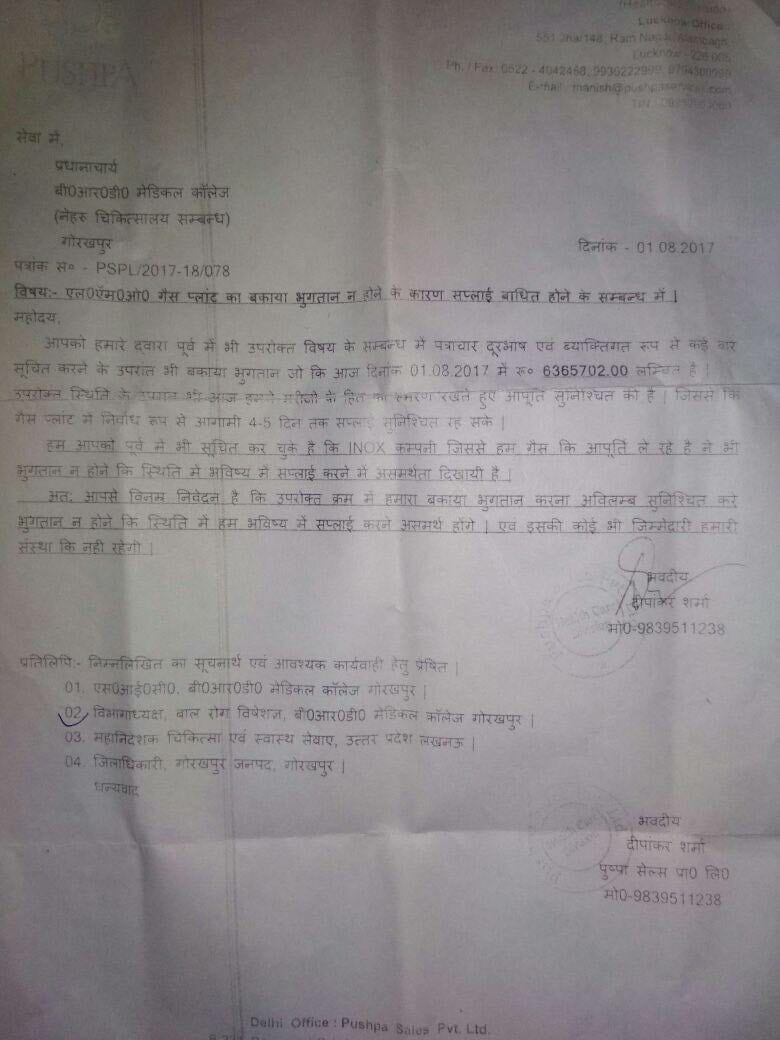 Lucknow Office:
551 Jha/148, Ram Nagar, Alambagh,
Lucknow - 226 005
Ph. / Fax: 0522 - 4042468, 9939222999,
E-mail: manish@pushpaservices.com
PUSHPA
सेवा में,
प्रधानाचार्य
बी0आर0डी0 मेडिकल कॉलेज
(नेहरु चिकित्सालय सम्बन्ध)
गोरखपुर
दिनांक - 01.08.2017
पत्राक स० - PSPL/2017-18/078
विषय:- एल0ऍम0ओ0 गैस प्लांट का बकाया भुगतान न होने के कारण सप्लाई बाधित होने के सम्बन्ध में |
महोदय,
आपको हमारे दवारा पूर्व में भी उपरोक्त विषय के सम्बन्ध में पत्राचार दूरभाष एवं व्याक्तिगत रूप से कई बार
सूचित करने के उपरांत भी बकाया भुगतान जो कि आज दिनांक 01.08.2017 में रू० 6365702.00 लम्बित है |
उपरोक्त स्थिति के उपरांत भी आज हमने मरीजो के हित का स्मरण रखते हुए आपूर्ति सुनिश्चित की है | जिससे कि
गैस प्लांट में निर्वाध रूप से आगामी 4-5 दिन तक सप्लाई सुनिश्चित रह सके |
हम आपको पूर्व में भी सूचित कर चुके है कि INOX कम्पनी जिससे हम गैस कि आपूर्ति ले रहे है ने भी
भुगतान न होने कि स्थिति में भविष्य में सप्लाई करने में असमर्थता दिखायी है |
अत: आपसे विनम्र निवेदन है कि उपरोक्त क्रम में हमारा बकाया भुगतान करना अविलम्ब सुनिश्चित करे
भुगतान न होने कि स्थिति में हम भविष्य में सप्लाई करने असमर्थ होंगे | एवं इसकी कोई भी जिम्मेदारी हमारी
संस्था कि नही रहेगी |
भवदीय
दीपांकर शर्मा
मो0-9839511238
प्रतिलिपि:- निम्नलिखित का सूचनार्थ एवं आवश्यक कार्यवाही हेतु प्रेषित |
01. एस0आई0सी0, बी0आर0डी0 मेडिकल कॉलेज गोरखपुर |
02. विभागाध्यक्ष, बाल रोग विषेशज्ञ, बी0आर0डी0 मेडिकल कॉलेज गोरखपुर |
03. महानिदेशक चिकित्सा एवं स्वास्थ सेवाए, उत्तर प्रदेश लखनऊ |
04. जिलाधिकारी, गोरखपुर जनपद, गोरखपुर |
धन्यवाद
भवदीय
दीपांकर शर्मा
पुष्पा सेल्स पा0 लि0
मो0-9839511238
Delhi Office : Pushpa Sales Pvt. Ltd.